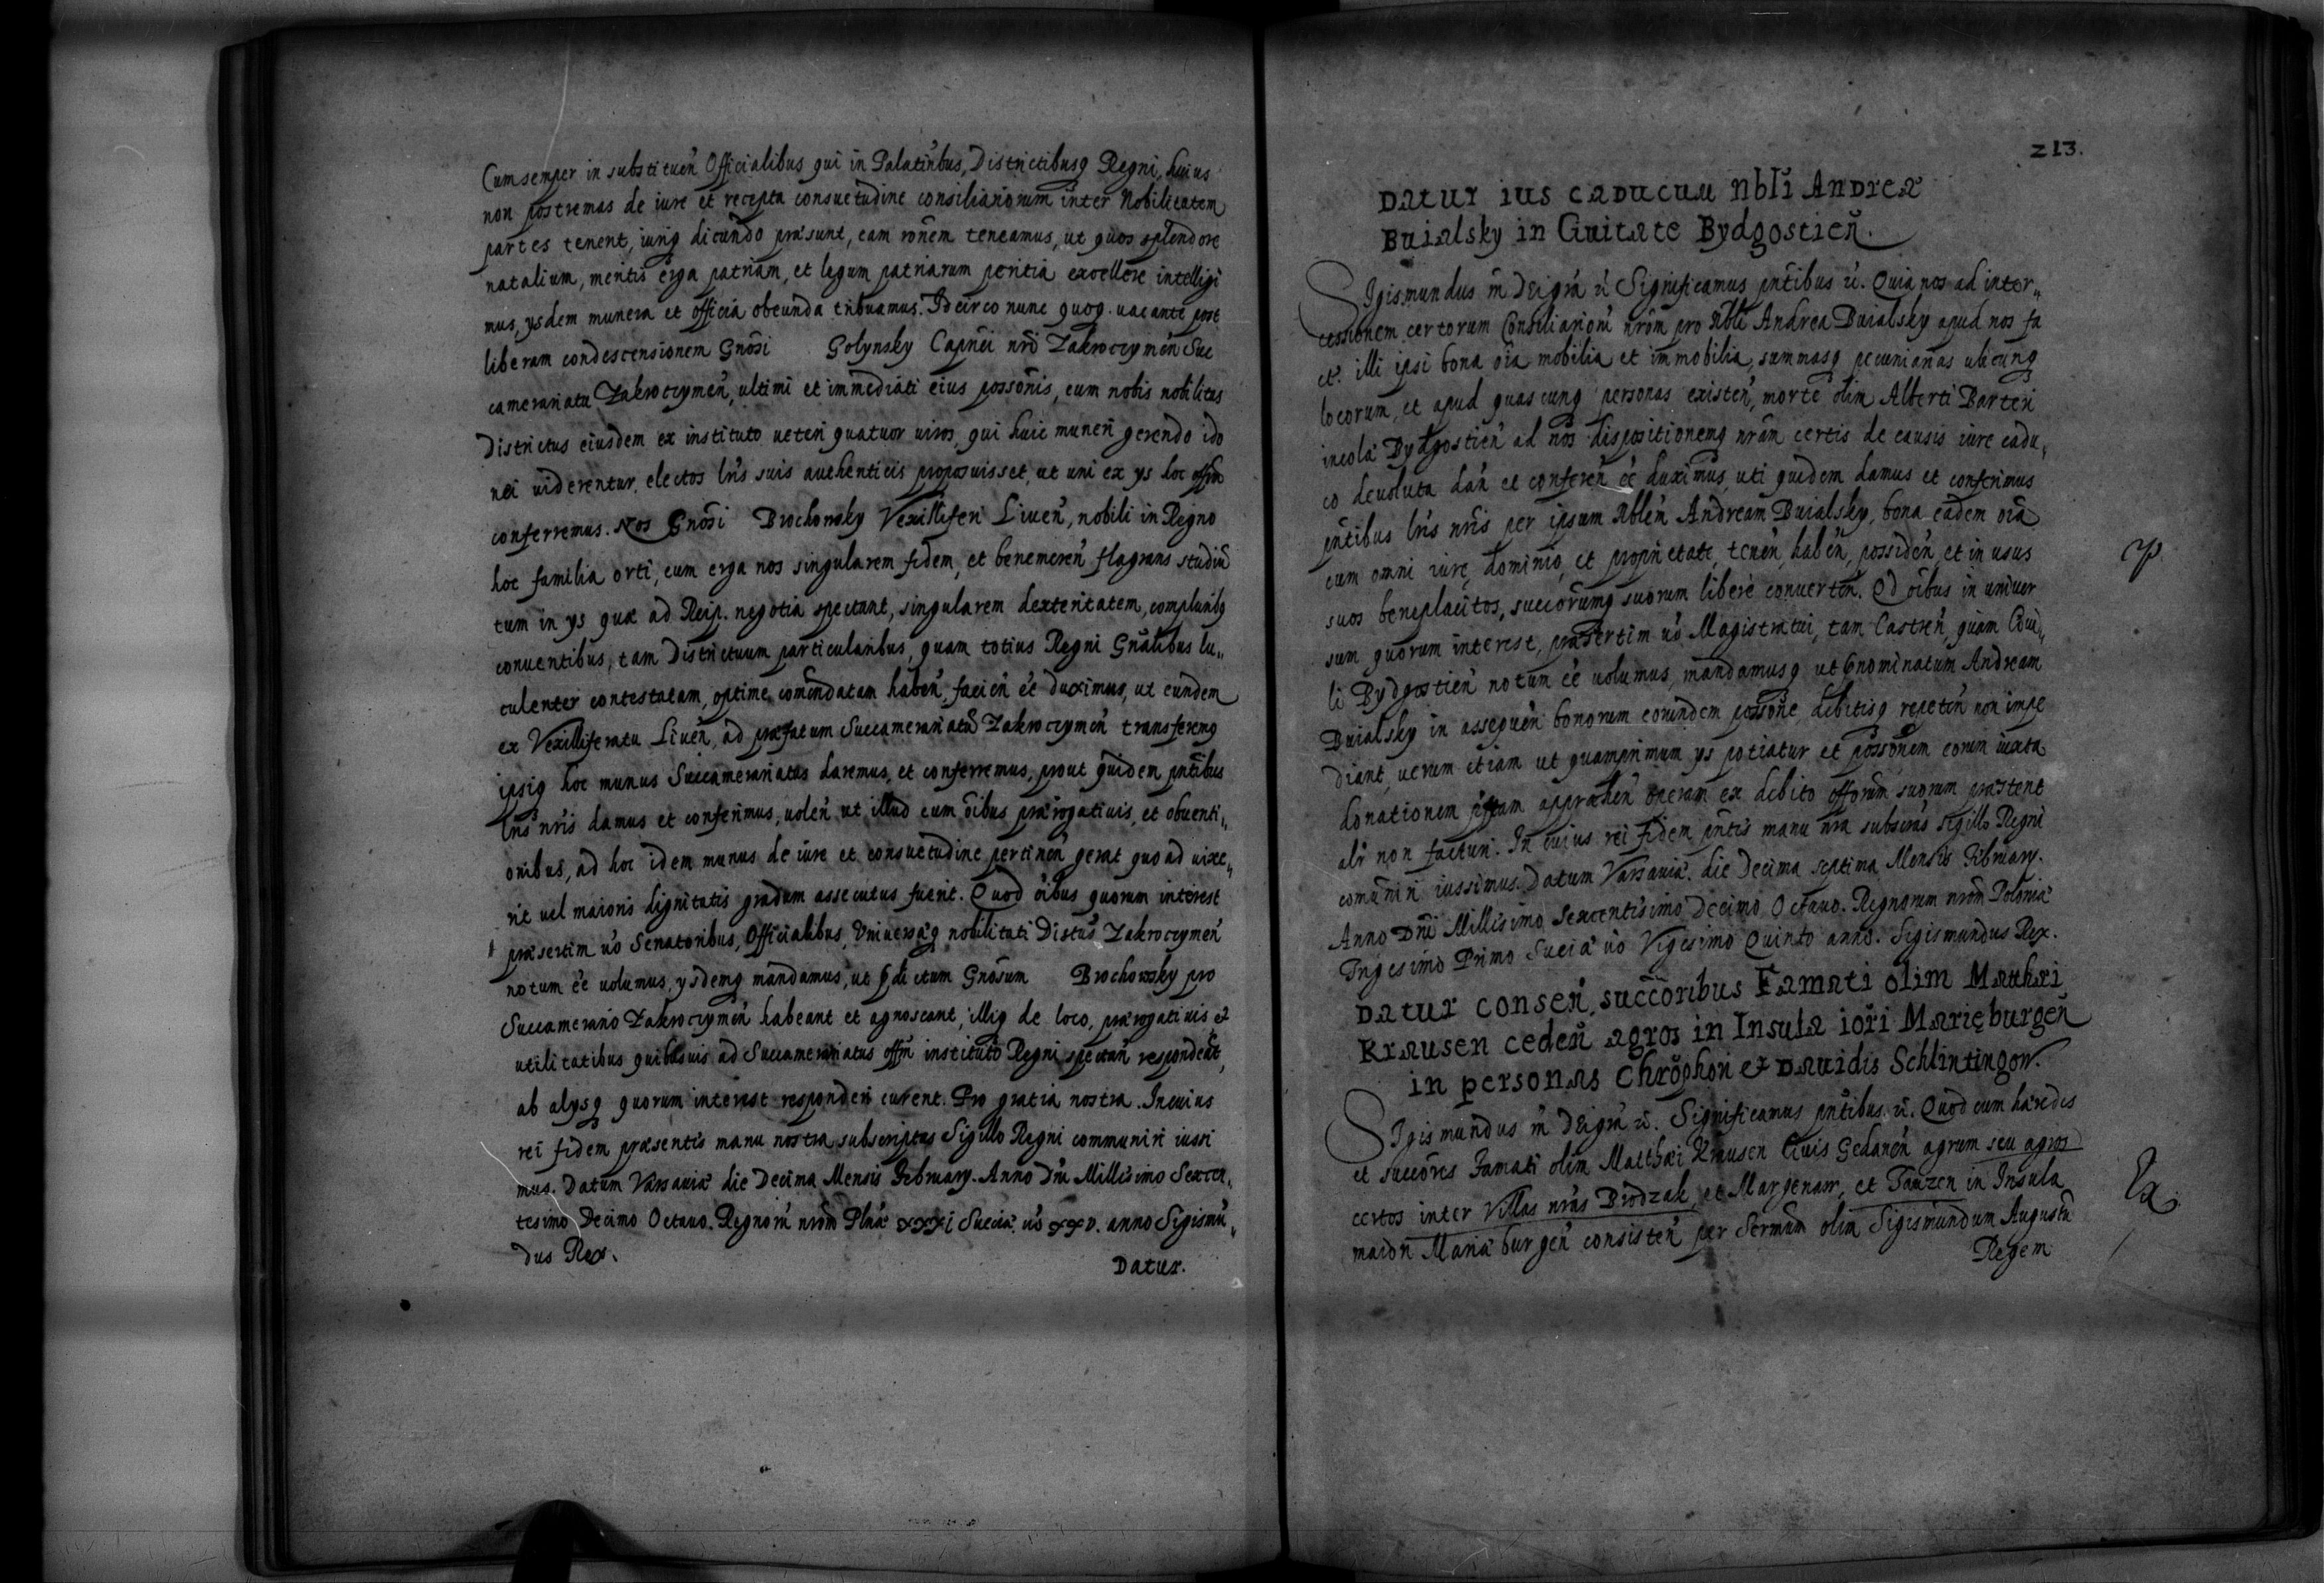 Cum semper in substituen̄ Officialibus qui in Palatin̄bus, Districtibusq Regni, huius
non postremas de iure et recepta consuetudine consiliariorum inter Nobilitatem
partes tenent, iuriq dicundo præsunt, eam rōnem teneamus, ut quos splendore
natalium, meritis erga patriam, et legum patriarum peritia excellere intelligi
mus, ysdem munera et officia obeunda tribuamus. Idcirco nunc quoq. uacante post
liberam condescensionem Gnōsi Golynsky Capnēi nrī Zakroczymen̄ Suc
camerariatu Zakroczymen̄, ultimi et immediati eius possōris, cum nobis nobilitas
Districtus eiusdem ex instituto ueteri quatuor uiros, qui huic muneri gerendo ido
nei uiderentur, electos lrīs suis authenticis proposuisset, ut uni ex ys hoc offm̄
conferremus. Nos Gnōsi Brochowsky Vexilliferi Liuen̄, nobili in Regno
hoc familia orti, cum erga nos singularem fidem, et benemeren̄ flagrans studiū
tum in ys quæ ad Reip. negotia spectant, singularem dexteritatem, compluribq
conuentibus, tam Districtuum particularibus, quam totius Regni Gnālibus lu„
culenter contestatam, optime comēndatam haben̄, facien̄ ēē duximus, ut eundem
ex Vexilliferatu Liuen̄, ad præfatum Succamerariatū Zakroczymen̄ transferemq
ipsiq hoc munus Succamerariatus daremus, et conferremus, prout quidem pn̄tibus
lrīs nrīs damus et conferimus, uolen̄ ut illud cum ōibus prærogatiuis, et obuenti„
onibus, ad hoc idem munus de iure et consuetudine pertinen̄ gerat quoad uixe„
rit uel maioris dignitatis gradum assecutus fuerit. Quod ōibus quorum interest
præsertim uō Senatoribus, Officialibus, Vniuersæq nobilitati Distūs Zakroczymen̄
notum ēē uolumus, ysdemq mandamus, ut pdictum Gnōsum Brochowsky pro
Succamerario Zakroczymen̄ habeant et agnoscant, illiq de loco, prærogatiuis, et
utilitatibus quibusuis ad Succamerariatus offm̄ instituto Regni spectan̄ respondeāt,
ab alysq quorum interest responderi curent. Pro gratia nostra. In cuius
rei fidem præsentis manu nostra subscriptas Sigillo Regni communiri iussi
mus. Datum Varsauiæ die Decima Mensis February. Anno Dnī Millisimo Sexcen„
tesimo Decimo Octauo. Regnorū nrōm Plnæ xxxi Sueciæ uō xxv. anno Sigismū„
dus Rex.
Datur.
213.
Datur ius caducum Nbli Andreæ
Buialsky in Ciuitate Bydgostien̄.
Sigismundus III Dei grā et̄ Significamus pn̄tibus et̄. Quia nos ad inter„
cessionem certorum Consiliariorū nrōm pro Nbli Andrea Buialsky apud nos fa
ct. illi ipsi bona oīa mobilia et immobilia, summasq pecuniarias ubicunq
locorum, et apud quascunq personas existen̄, morte olim Alberti Barteri
incolæ Bydgostien̄ ad nos dispositionemq nrām certis de causis iure cadu„
co deuoluta dan̄ et conferen̄ ēē duximus, uti quidem damus et conferimus
pn̄tibus lrīs nrīs per ipsum Nblēm Andream Buialsky, bona eadem oīa
cum omni iure, dominio, et proprietate, tenen̄, haben̄, possiden̄, et in usus
suos beneplacitos, succōrumq suorum libere conuerten̄. Qd ōibus in uniuer
sum quorum interest, præsertim uō Magistratui, tam Castren̄, quam Ciui„
li Bydgostien̄ notum ēē uolumus, mandamusq ut pnominatum Andream
Buialsky in assequen̄ bonorum eorundem possōne, debitisq repeten̄ non impe
diant, uerum etiam ut quamprimum ys potiatur et possōnem eorum iuxta
donationem istam apprehen̄ operam ex debito offōrum suorum præstent
alr̄ non facturi. In cuius rei fidem pn̄tis manu nrā subscrās sigillo Regni
comūniri iussimus. Datum Varsauiæ. die Decima septima Mensis February.
Anno Dnī Millisimo Sexcentisimo Decimo Octauo. Regnorum nrōm Poloniæ
Trigesimo Primo Sueciæ uō Vigesimo Quinto anno. Sigismundus Rex.
Datur consen̄. succōribus Famati olim Mathæi
Krausen ceden̄ agros in Insula iōri Marięburgen̄
in personas Chrōphori et Dauidis Schlintingow.
Sigismundus III Dei grā et̄. Significamus pn̄tibus et̄. Quod cum hæredes
et succōres Famati olim Matthæi Krausen Ciuis Gedanen̄ agrum seu agros
certos inter Villas nrās Brodzak, et Margenaw, et Tanzen in Insula
maiori Mariæburgen̄ consisten̄ per Sermūm olim Sigismundum Augustū
Regem